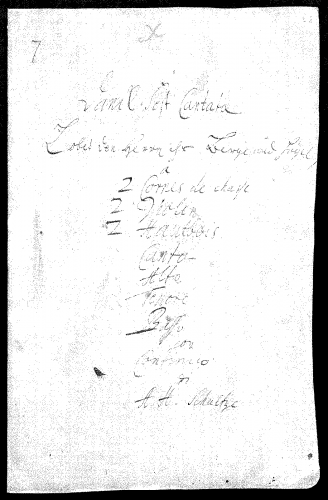 7
Cantata
Lobet den Herrn ihr Berge und Hügel
à
2 Cornes de chasse
2 Violin
2 Hautbois
Canto
Alto
Tenore
Basso
con
Continuo
di
A. H. Schultze